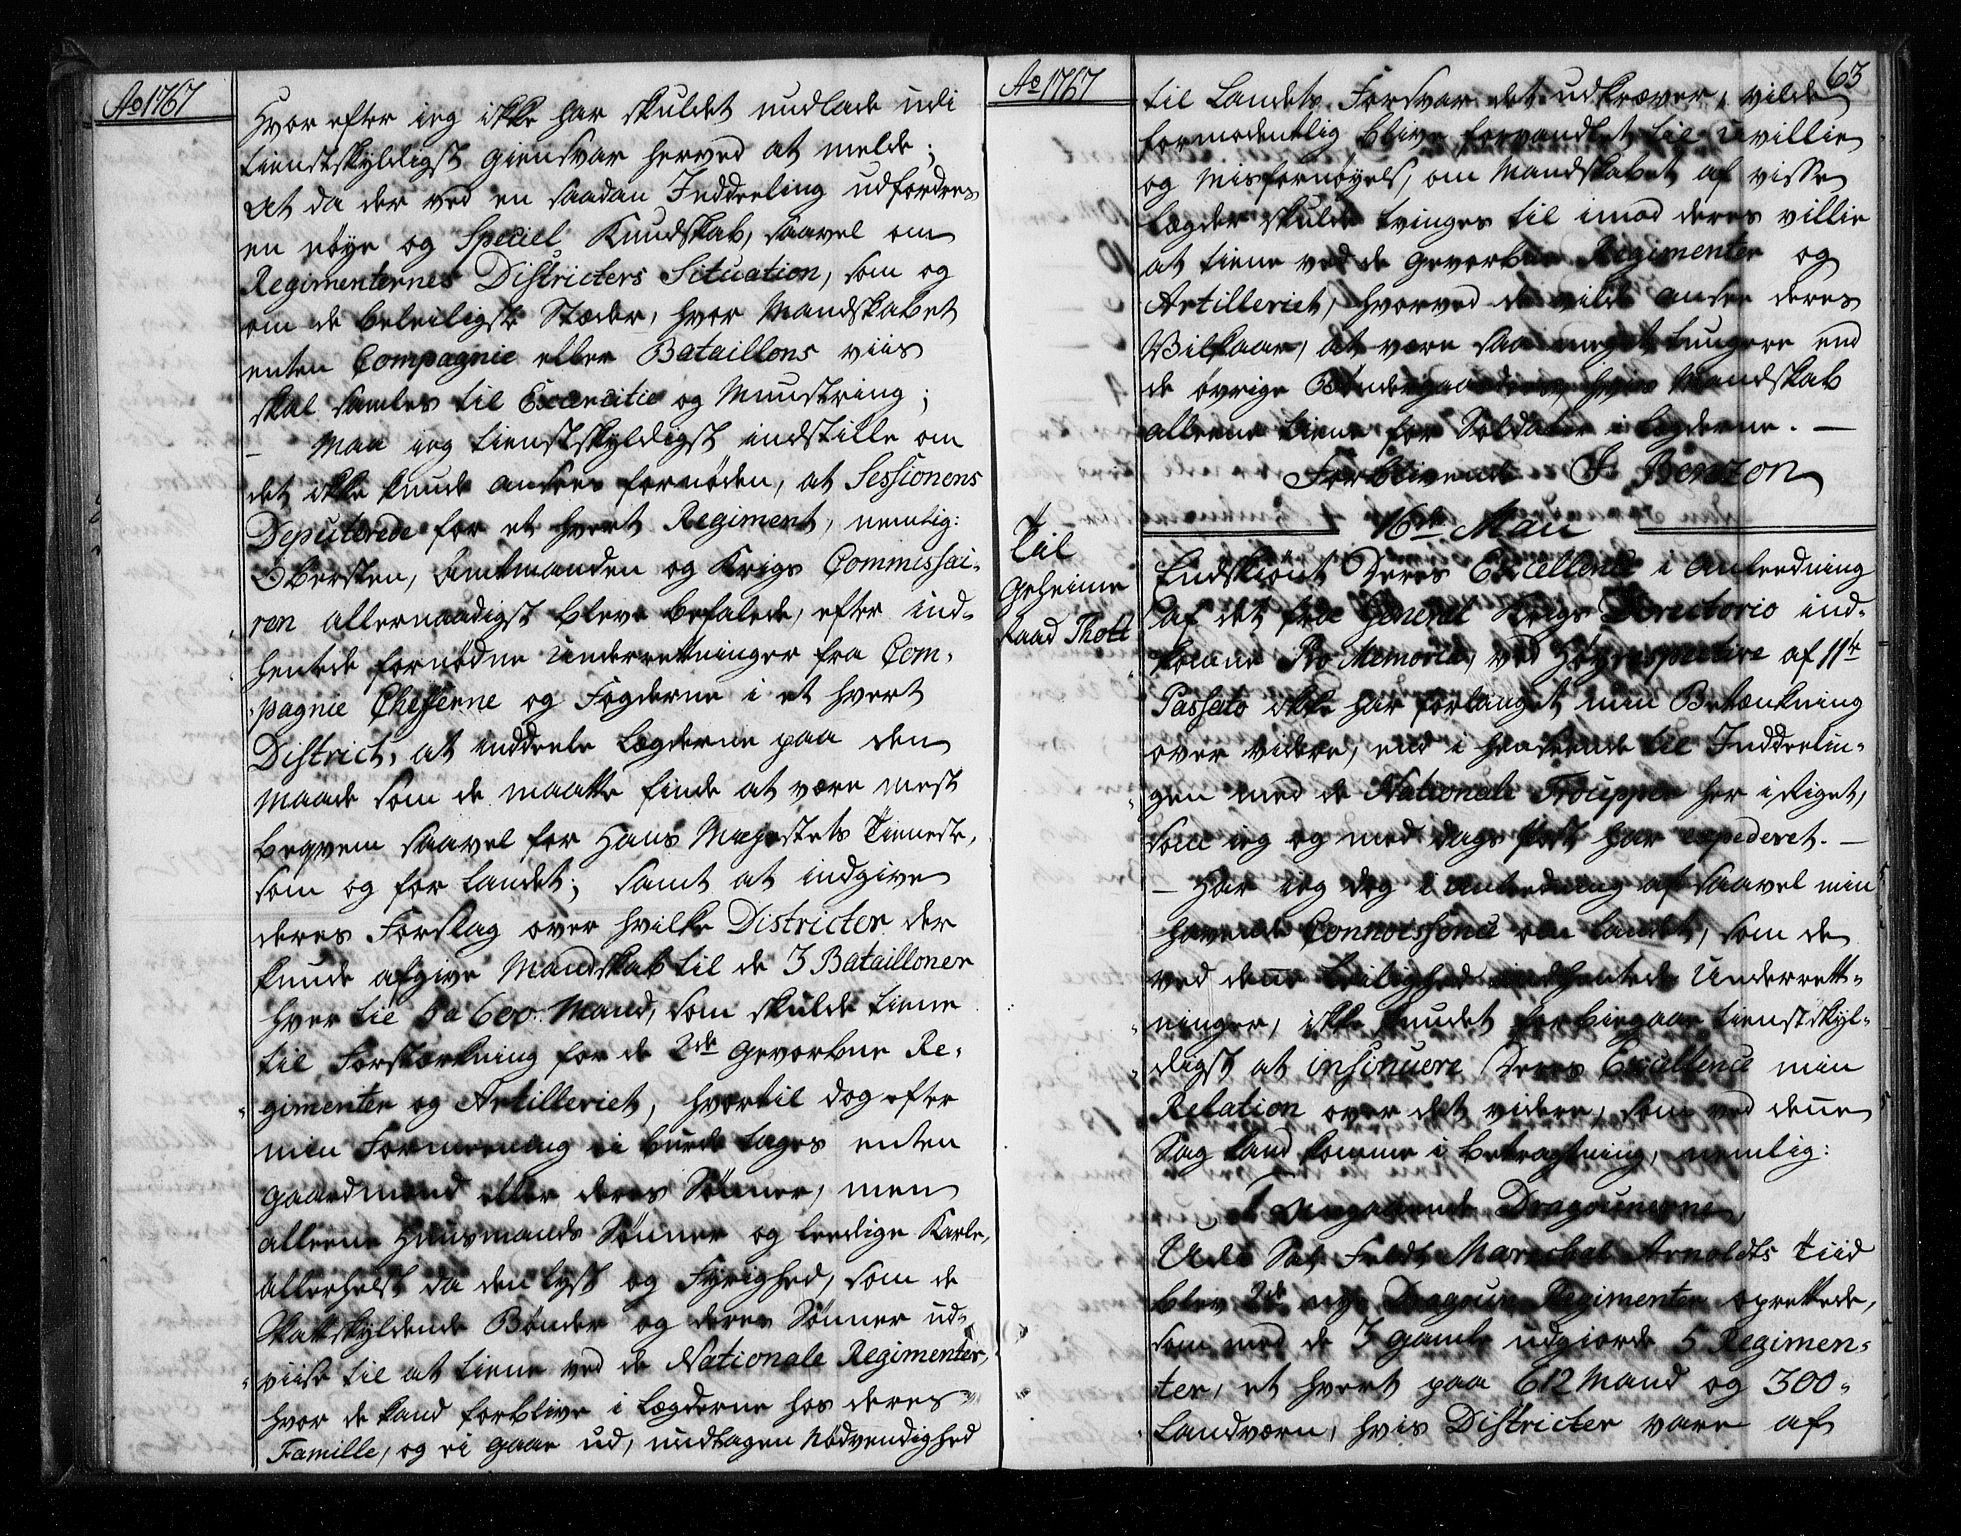 Ao 1767
Hvorefter jeg ikke har skuldet undlade udi
tienstskyldigst giensvar herved at melde;
At da der ved en saadan Inddeeling udfordres
en nøye og Speciel Kundskab, saavel om
Regimenternes Districters Situation, som og
om de beleiligste Stæder, hvor Mandskabet
enten Compagnie eller Bataillons viis
skal samles til Excercitie og Munstring;
– Maa jeg tienstskyldigst indstille om
det ikke kunde ansees fornøden, at Sessionens
Deputerede for et hvert Regiment, nemlig:
Obersten, Amtmanden og Krigs Commissai-
ren allernaadigst bleve befalede, efter ind-
hentede fornødne Underrettninger fra Com-
pagnie Chefferne og Fogderne i et hvert
District, at inddeele Lægderne paa den
Maade som de maatte finde at være mest
beqvem saavel for Hans Majestets Tieneste,
som og for Landet; samt at indgive
deres Forslag over hvilke Districter der
kunde afgive Mandskab til de 3 Batailloner
hver til 5 a 600 Mand, som skulde tiene
til Forstærkning for de 2de gevorbne Re-
gimenter og Artilleriet, hvortil dog efter
min Formeening ei burde tages enten
gaardmænd eller deres Sønner, men
alleene Huusmænds Sønner og leedige Karle,
allerhelst da den lyst og Fyrighed, som de
Skattskyldende Bønder og deres Sønner ud-
viise til at tiene ved de Nationale Regimenter,
hvor de kand forblive i Lægderne hos deres
Famille, og ei gaae ud, undtagen Nødvendighed
Ao 1767
63
til Landets Forsvar det udkræver, vilde
formodentlig blive forvandlet til Uvillie
og Misfornøyelse, om Mandskabet af visse
Lægder skulde tvinges til imod deres villie
at tiene ved de gevorbne Regimenter og
Artilleriet, hvorved de vilde ansee deres
Vilkaar, at være saa meget tungere end
de øvrige Bøndergaarders hvis Mandskab
alleene tiene for Soldater i Lægderne. –
Forblivende J. Benzon
16de Maii
Til
Geheime
Raad Thott
Endskiønt Deres Excellence i Anleedning
af det fra General Krigs Directorio ind-
komne Pro Memoria, ved Høyrespective af 11te
Passato ikke har forlanget min Betænkning
over videre, end i henseende til Inddeelin-
gen med de Nationale Troupper her i Riget,
som jeg og med dags Post har expederet. –
– Har jeg dog i Anleedning af saavel min
havende Connoissance om Landet, som de
ved denne Leilighed indhentede Underrett-
ninger, ikke kundet forbiegaae tienstskyl-
digst at insinuere Deres Excellence min
Relation over det videre, som ved denne
Sag kand komme i betragtning, nemlig:
1 Angaaende Dragounerne,
Udi Sal. Feldt Mareskal Arnoldts Tiid
blev 2de nye Dragoun Regimenter oprettede,
som med de 3 gamle udgiorde 5 Regimen-
ter, et hvert paa 612 Mand og 300
Landværn, hvis Districter vare af